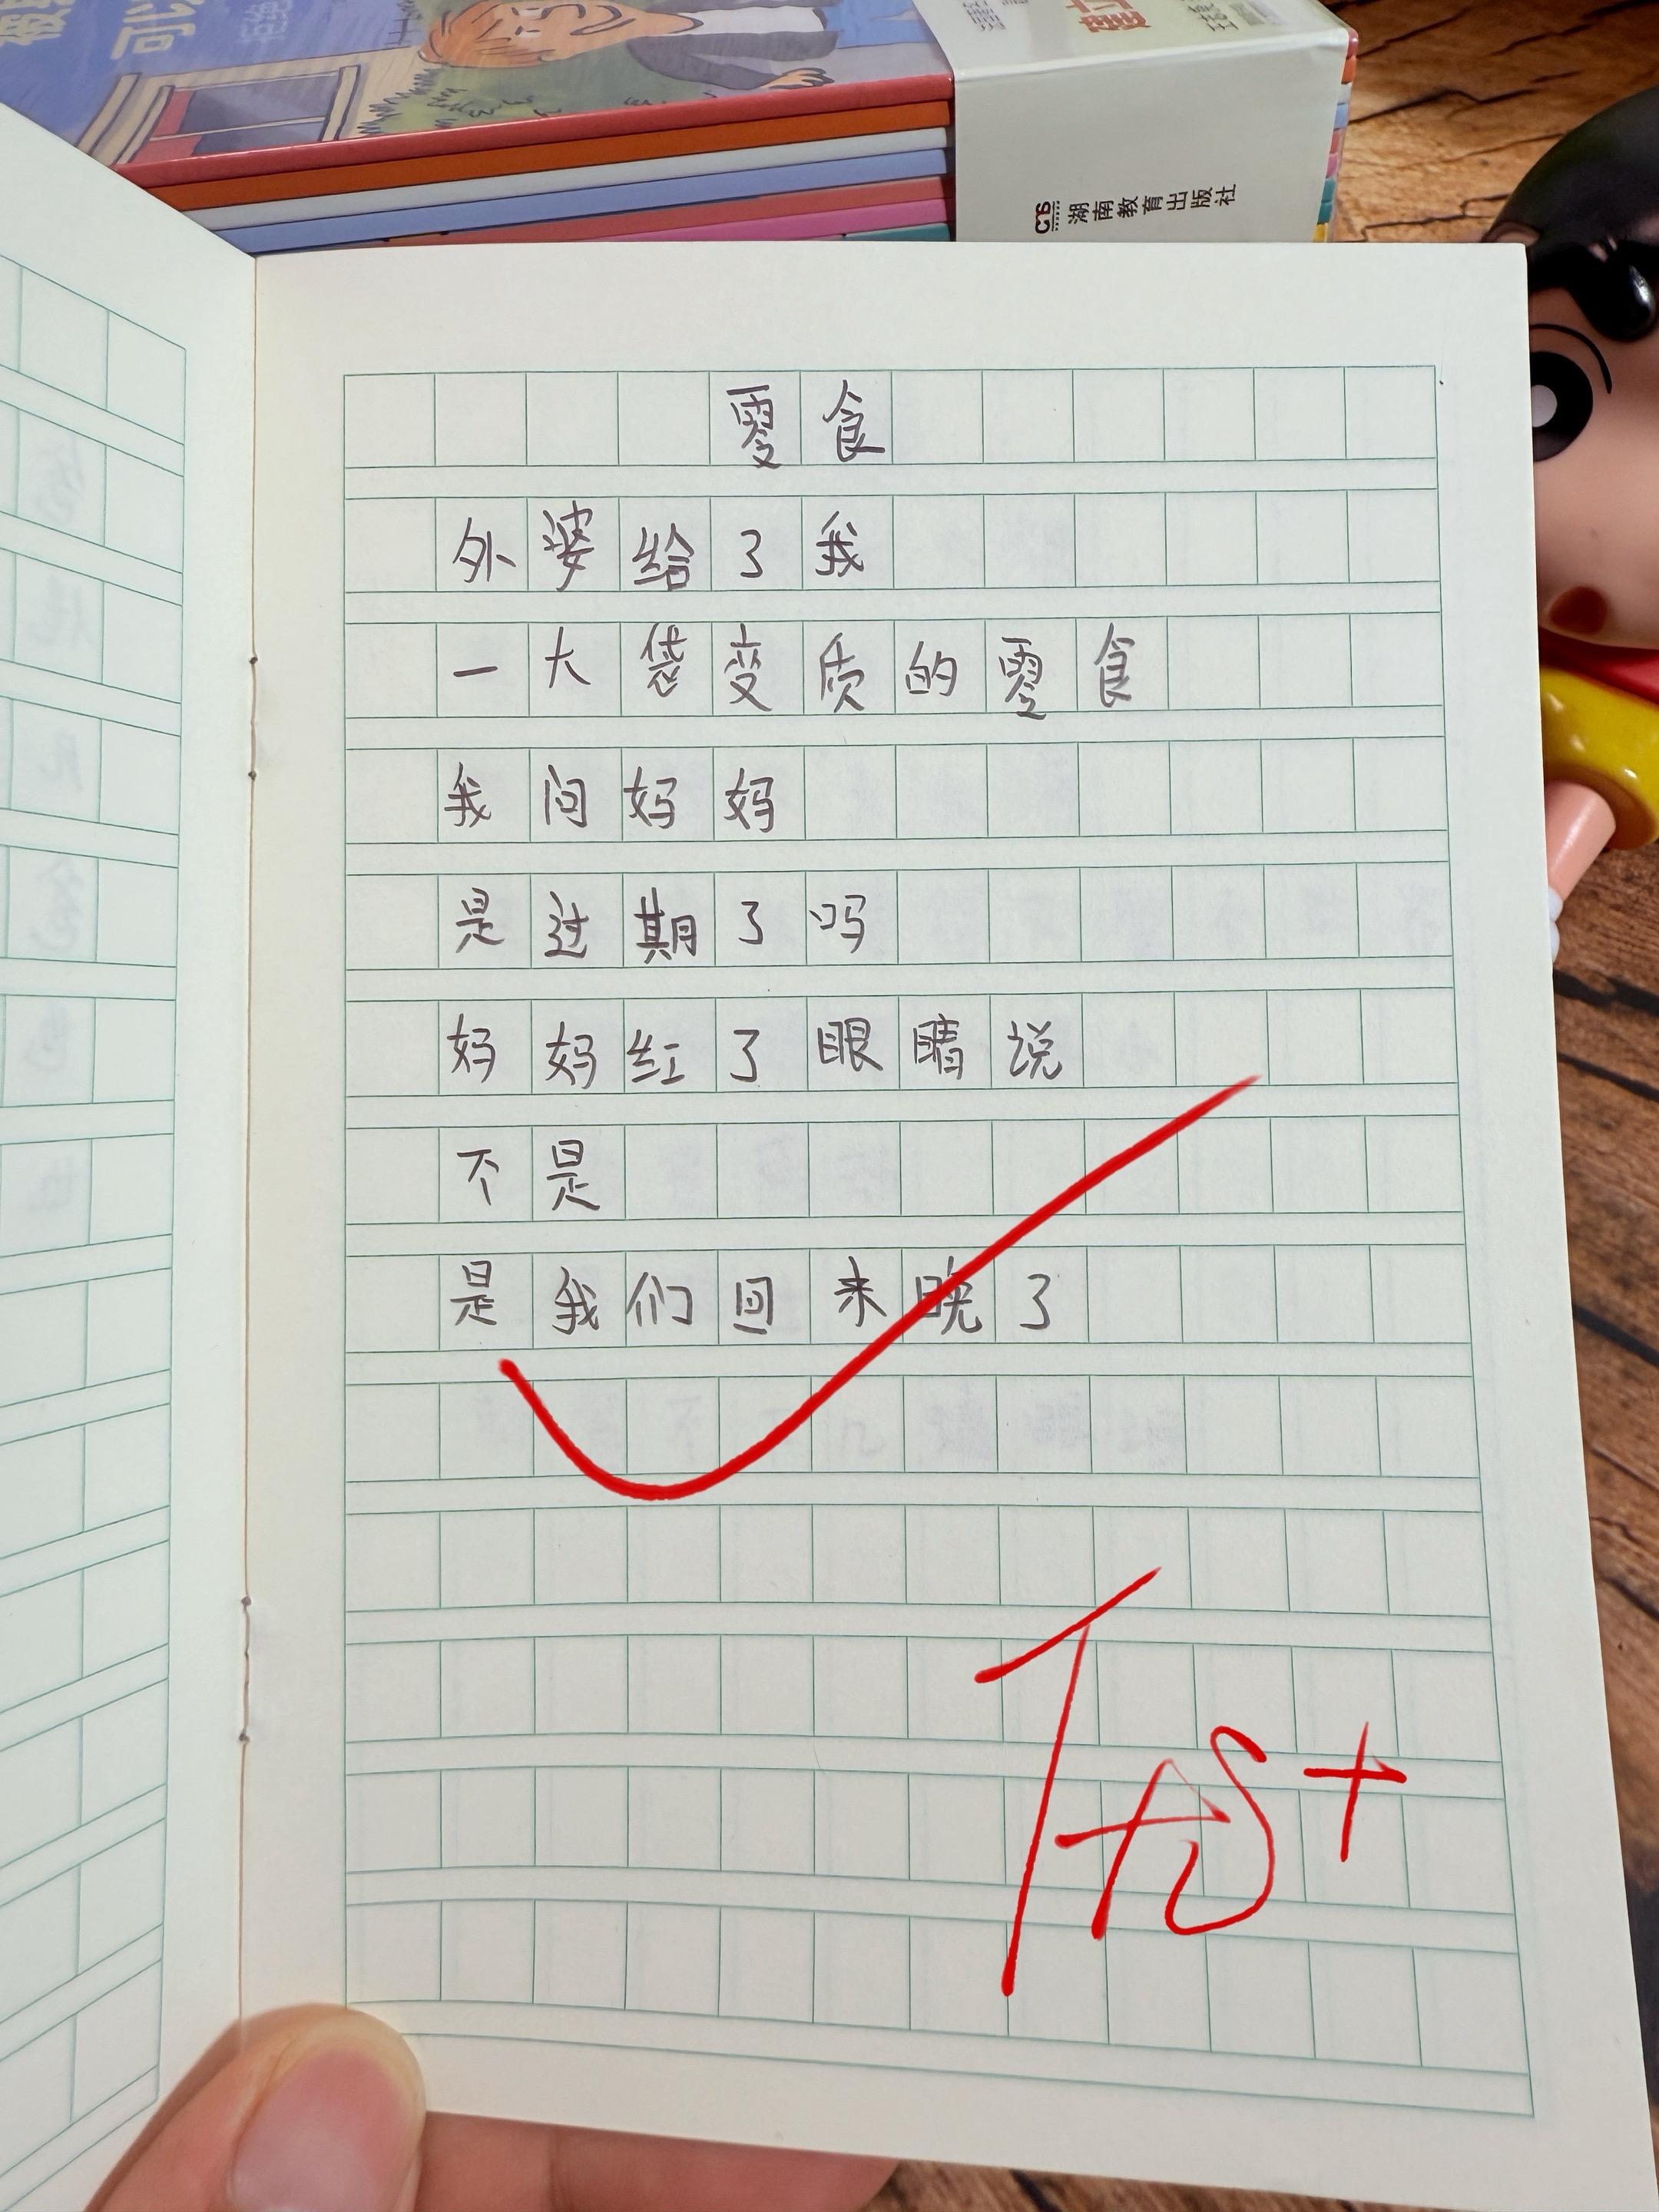 湖南教育出版社
零食
外婆给了我
一大袋变质的零食
我问妈妈
是过期了吗
妈妈红了眼睛说
不是
是我们回来晚了